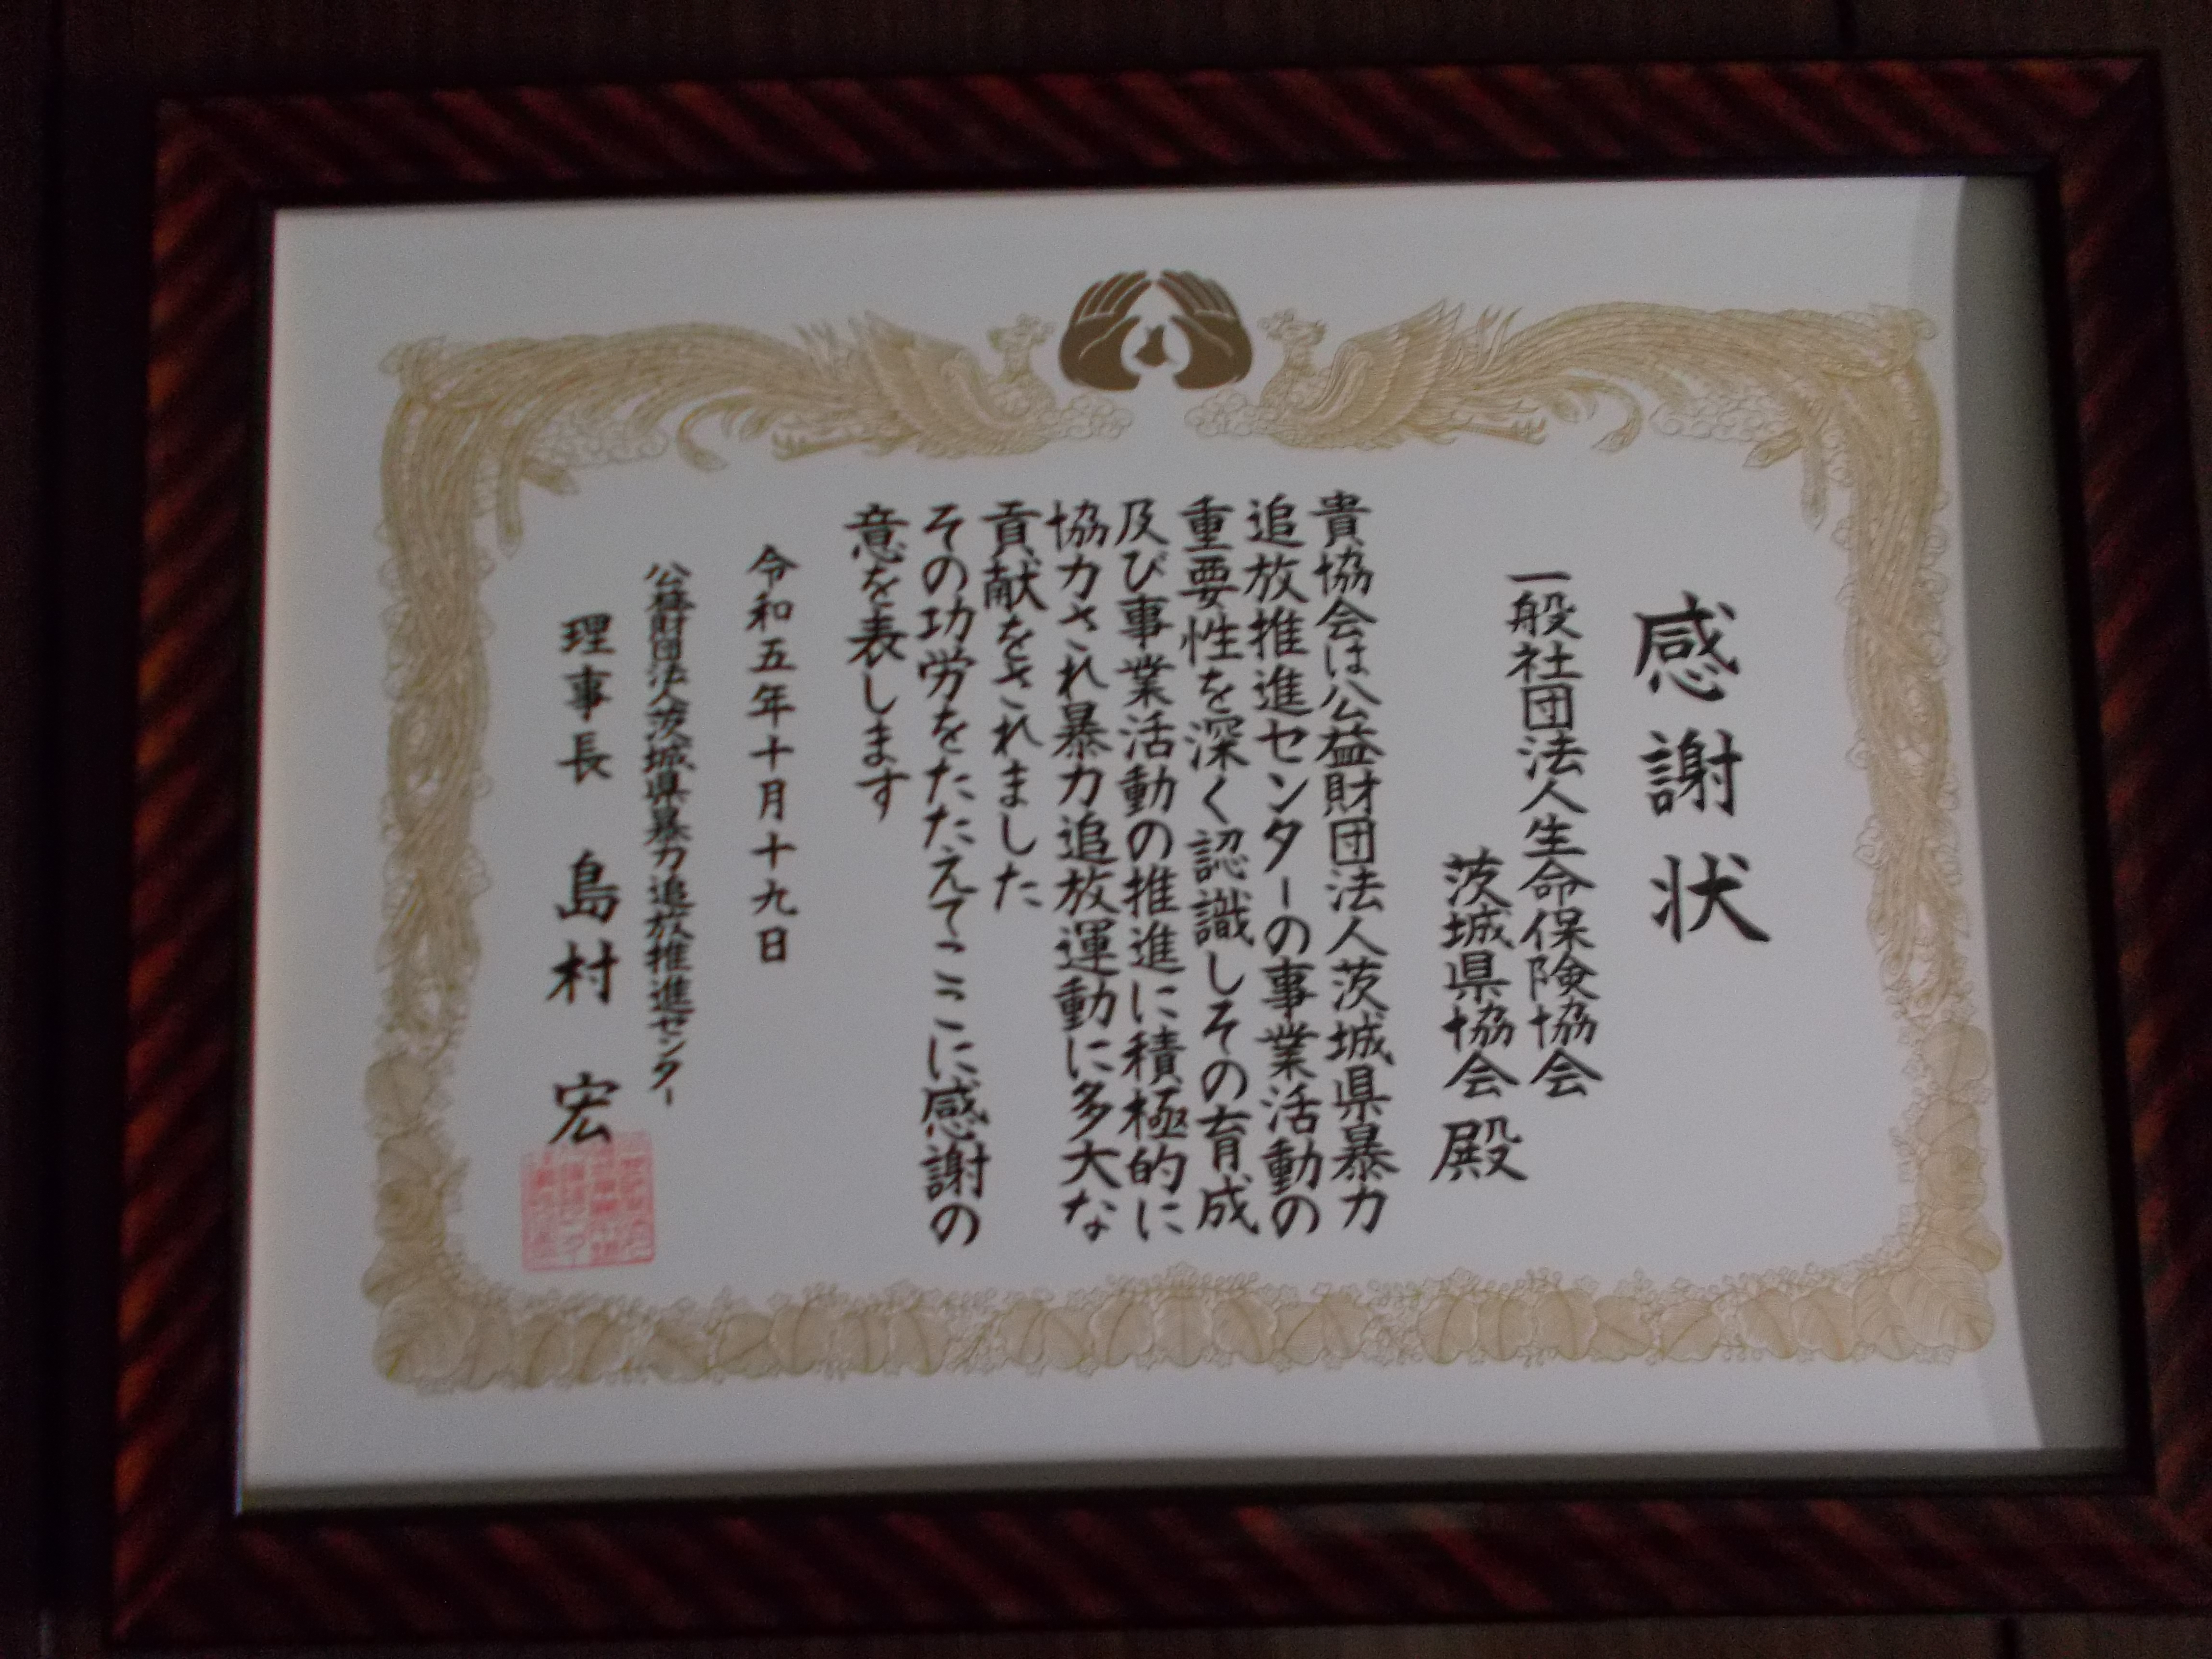 感謝状
一般社団法人生命保険協会
茨城県協会殿
貴協会は公益財団法人茨城県暴力
追放推進センターの事業活動の
重要性を深く認識しその育成
及び事業活動の推進に積極的に
協力され暴力追放運動に多大な
貢献をされました
その功労をたたえてここに感謝の
意を表します
令和五年十月十九日
公益財団法人茨城県暴力追放推進センター
理事長 島村 宏